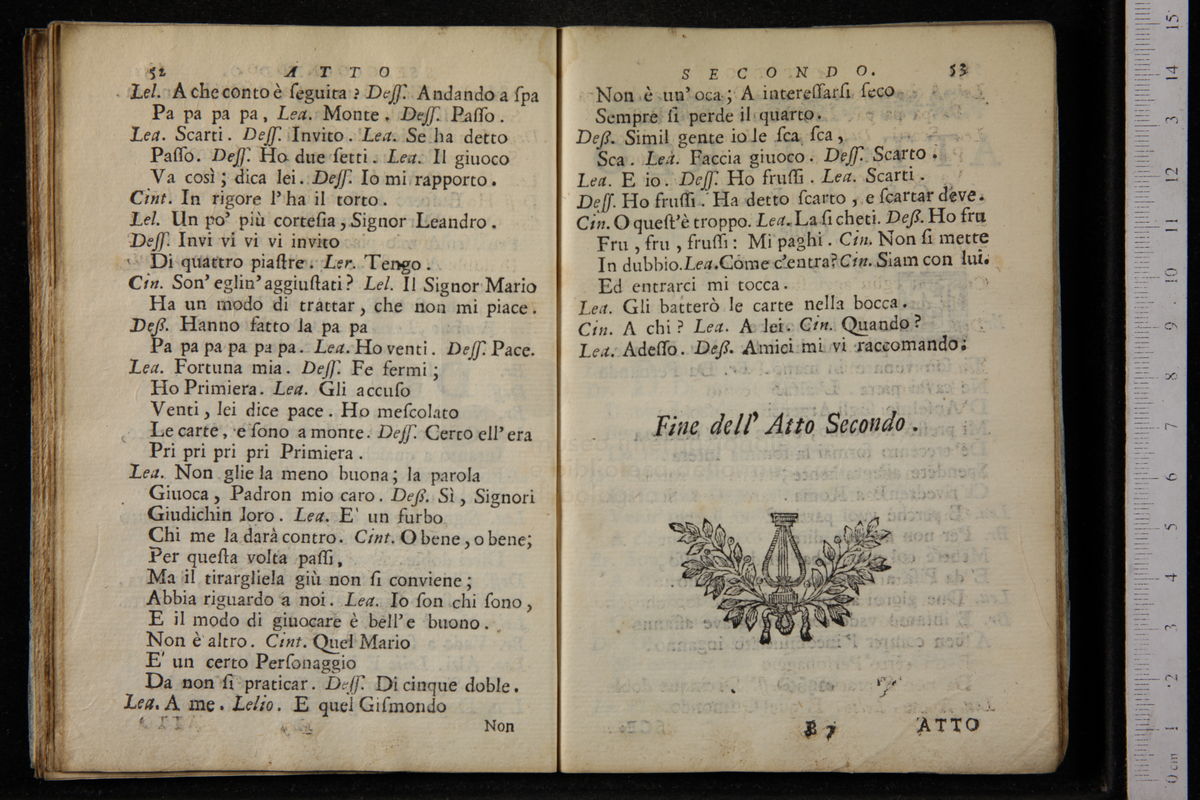 52 ATTO
Lel. A che conto è ſeguita? Deſſ. Andando a ſpa
Pa pa pa pa, Lea. Monte. Deſſ. Paſſo.
Lea. Scarti. Deſſ. Invito. Lea. Se ha detto
Paſſo. Deſſ. Ho due ſetti. Lea. Il giuoco
Va così; dica lei. Deſſ. Io mi rapporto.
Cint. In rigore l'ha il torto.
Lel. Un po' più corteſia, Signor Leandro.
Deſſ. Invi vi vi vi invito
Di quattro piaſtre. Ler. Tengo.
Cin. Son' eglin' aggiuſtati? Lel. Il Signor Mario
Ha un modo di trattar, che non mi piace.
Deß. Hanno fatto la pa pa
Pa pa pa pa pa pa. Lea. Ho venti. Deſſ. Pace.
Lea. Fortuna mia. Deſſ. Fe fermi;
Ho Primiera. Lea. Gli accuſo
Venti, lei dice pace. Ho meſcolato
Le carte, e ſono a monte. Deſſ. Certo ell'era
Pri pri pri pri Primiera.
Lea. Non glie la meno buona; la parola
Giuoca, Padron mio caro. Deß. Sì, Signori
Giudichin loro. Lea. E' un furbo
Chi me la darà contro. Cint. O bene, o bene;
Per queſta volta paſſi,
Ma il tirargliela giù non ſi conviene;
Abbia riguardo a noi. Lea. Io ſon chi ſono,
E il modo di giuocare è bell'e buono.
Non è altro. Cint. Quel Mario
E' un certo Perſonaggio
Da non ſi praticar. Deſſ. Di cinque doble.
Lea. A me. Lelio. E quel Giſmondo
Non
SECONDO. 53
Non è un' oca; A intereſſarſi ſeco
Sempre ſi perde il quarto.
Deß. Simil gente io le ſca ſca,
Sca. Lea. Faccia giuoco. Deſſ. Scarto.
Lea. E io. Deſſ. Ho fruſſi. Lea. Scarti.
Deſſ. Ho fruſſi. Ha detto ſcarto, e ſcartar deve.
Cin. O queſt'è troppo. Lea. La ſi cheti. Deß. Ho fru
Fru, fru, fruſſi: Mi paghi. Cin. Non ſi mette
In dubbio. Lea. Come c'entra? Cin. Siam con lui.
Ed entrarci mi tocca.
Lea. Gli batterò le carte nella bocca.
Cin. A chi? Lea. A lei. Cin. Quando?
Lea. Adeſſo. Deß. Amici mi vi raccomando.
Fine dell' Atto Secondo.
ATTO
15
14
13
12
11
10
9
8
7
6
5
4
3
2
1
0 cm